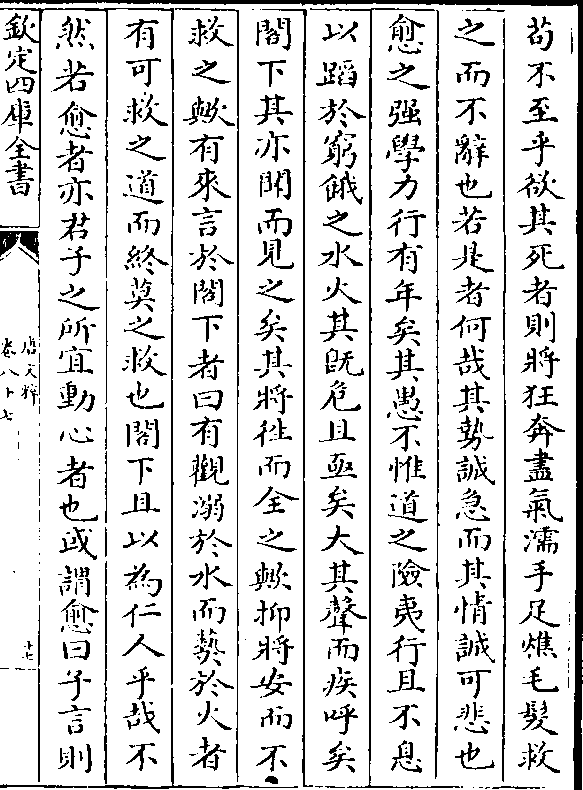 苟不至乎欲其死者則將狂奔盡氣濡手足燋毛髮救
之而不辭也若是者何哉其勢誠急而其情誠可悲也
愈之强學力行有年矣其愚不惟道之險夷行且不息
以蹈於窮餓之水火其旣危且亟矣大其聲而疾呼矣
閣下其亦聞而見之矣其將徃而全之歟抑將安而不
救之歟有來言於閣下者曰有觀溺於水而爇於火者
有可救之道而終莫之救也閣下且以為仁人乎哉不
然若愈者亦君子之所宜動心者也或謂愈曰子言則
欽定四庫全書
唐文粹
卷八十七
十七